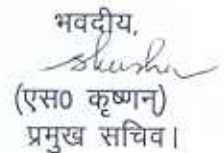 भवदीय,
(एस0 कृष्णन)
प्रमुख सचिव।